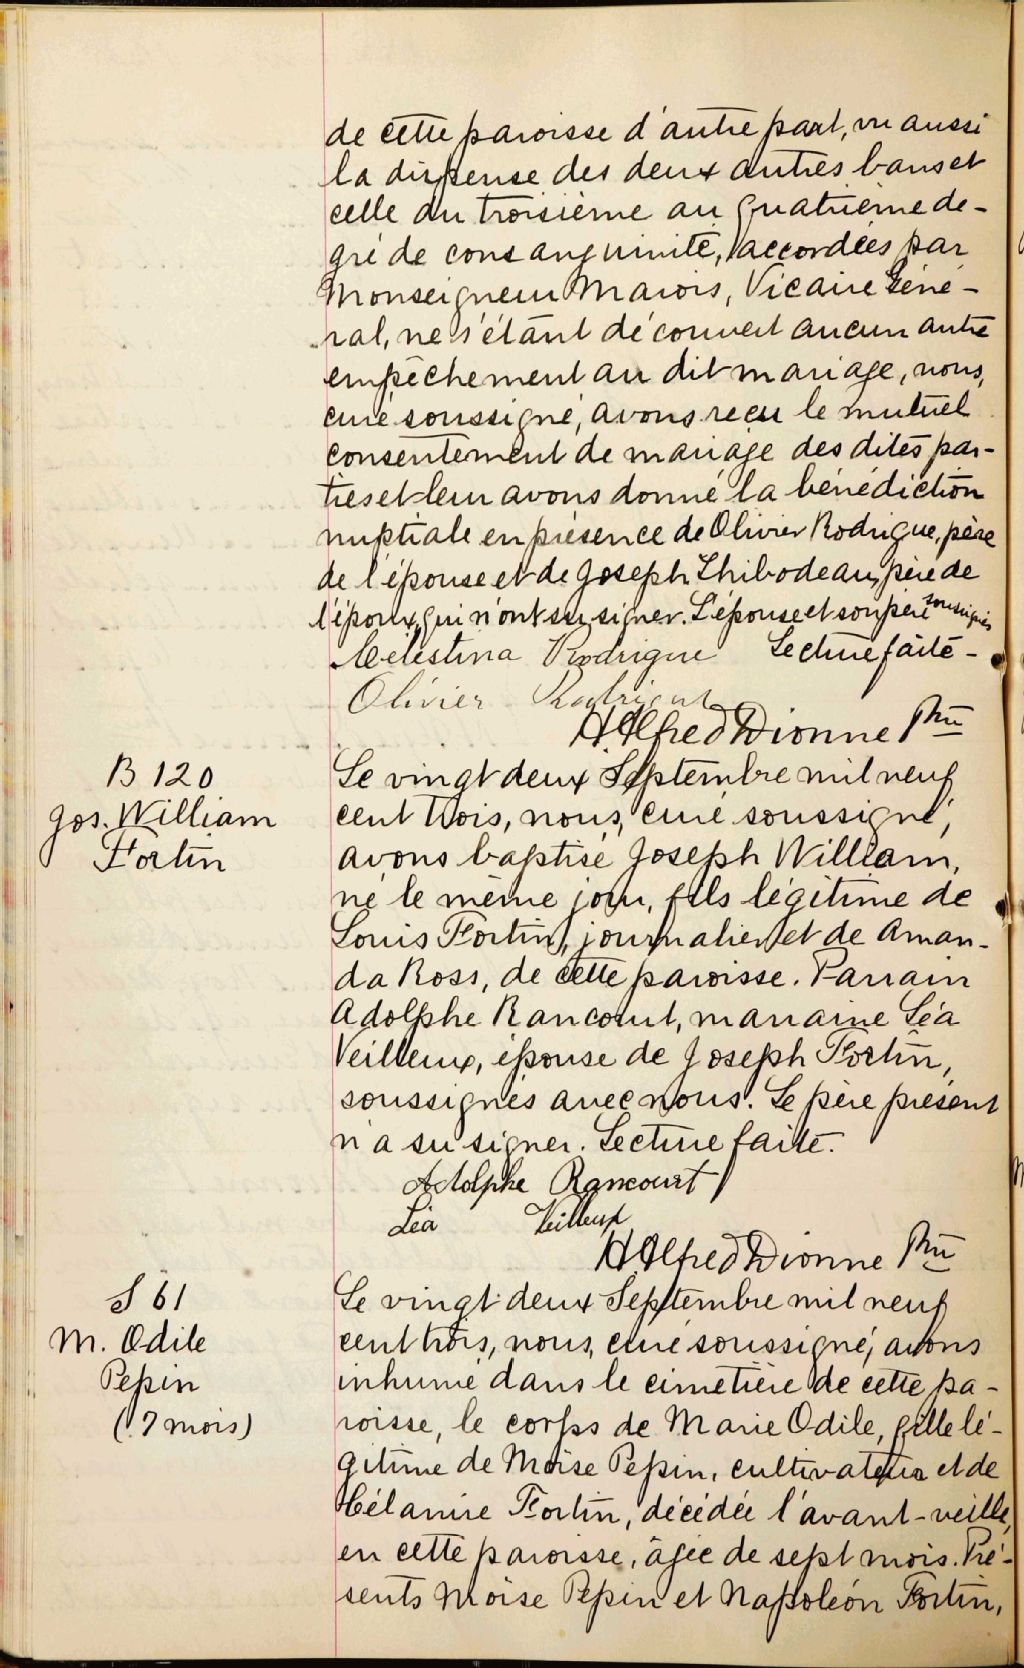 de cette paroisse d'autre part, vu aussi
la dispense des deux autres bans et
celle du troisième au quatrième de-
gré de consanguinité, accordées par
Monseigneur Marois, Vicaire Géné-
ral, ne s'étant découvert aucun autre
empêchement au dit mariage, nous,
curé soussigné, avons reçu le mutuel
consentement de mariage des dites par-
ties et leur avons donné la bénédiction
nuptiale en présence de Olivier Rodrigue, père
de l'épouse et de Joseph Thibodeau, père de
l'époux, qui n'ont su signer. L'épouse et son père soussignés
Celestina Rodrigue Lecture faite -
Olivier Rodrigue
H Alfred Dionne Ptre
B 120
Jos. William
Fortin
Le vingt deux Septembre mil neuf
cent trois, nous, curé soussigné,
avons baptisé Joseph William,
né le même jour, fils légitime de
Louis Fortin, journalier et de Aman-
da Ross, de cette paroisse. Parrain
Adolphe Rancourt, marraine Léa
Veilleux, épouse de Joseph Fortin,
soussignés avec nous. Le père présent
n'a su signer. Lecture faite.
Adolphe Rancourt
Léa Veilleux
H Alfred Dionne Ptre
S 61
M. Odile
Pepin
(7 mois)
Le vingt-deux Septembre mil neuf
cent trois, nous, curé soussigné, avons
inhumé dans le cimetière de cette pa-
roisse, le corps de Marie Odile, fille lé-
gitime de Moïse Pepin, cultivateur et de
Fortin, décédée l'avant-veille,
en cette paroisse, âgée de sept mois. Pré-
sents Moïse Pepin et Napoléon Fortin,